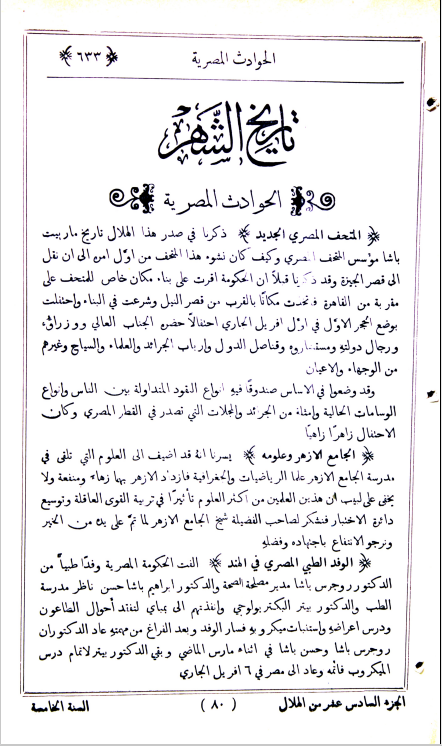 الحوادث المصرية ﴿ ٦٣٣ ﴾
تاريخ الشهر
الحوادث المصرية
﴿ المتحف المصري الجديد ﴾ ذكرنا في صدر هذا الهلال تاريخ مارييت
باشا مؤسس المتحف المصري وكيف كان نشوء هذا المتحف من اوّل امره الى ان نقل
الى قصر الجيزة وقد ذكرنا قبلاً ان الحكومة اقرت على بناء مكان خاص للمتحف على
مقربة من القاهرة فاتخذت مكانًا بالقرب من قصر النيل وشرعت في البناء واحتفلت
بوضع الحجر الاوّل في اوّل افريل الجاري احتفالاً حضره الجناب العالي ووزراؤه
ورجال دولته ومستشاروه وقناصل الدول وارباب الجرائد والعلماء والسياح وغيرهم
من الوجهاء والاعيان
وقد وضعوا في الاساس صندوقًا فيه انواع النقود المتداولة بين الناس وانواع
الوسامات الحالية وامثلة من الجرائد والمجلات التي تصدر في القطر المصري وكان
الاحتفال زاهرًا زاهيًا
﴿ الجامع الازهر وعلومه ﴾ يسرنا انه قد اضيف الى العلوم التي تلقى في
مدرسة الجامع الازهر علما الرياضيات والجغرافية فازداد الازهر بهما زهاء ومنفعة ولا
يخفى على لبيب ان هذين العلمين من اكثر العلوم تأثيرًا في تربية القوى العاقلة وتوسيع
دائرة الاختبار فنشكر لصاحب الفضيلة شيخ الجامع الازهر لما تمّ على يده من الخير
ونرجو الانتفاع باجتهاده وفضله
﴿ الوفد الطبي المصري في الهند ﴾ الفت الحكومة المصرية وفدًا طبيًا من
الدكتور روجرس باشا مدير مصلحة الصحة والدكتور ابراهيم باشا حسن ناظر مدرسة
الطب والدكتور بيتر البكتريولوجي وانفذتهم الى بمباي لتفقد أحوال الطاعون
ودرس اعراضه واستنبات ميكروبه فسار الوفد وبعد الفراغ من مهمته عاد الدكتوران
روجرس باشا وحسن باشا في اثناء مارس الماضي وبقي الدكتور بيتر لاتمام درس
الميكروب فاتمه وعاد الى مصر في ٦ افريل الجاري
الجزء السادس عشر من الهلال ( ٨٠ ) السنة الخامسة